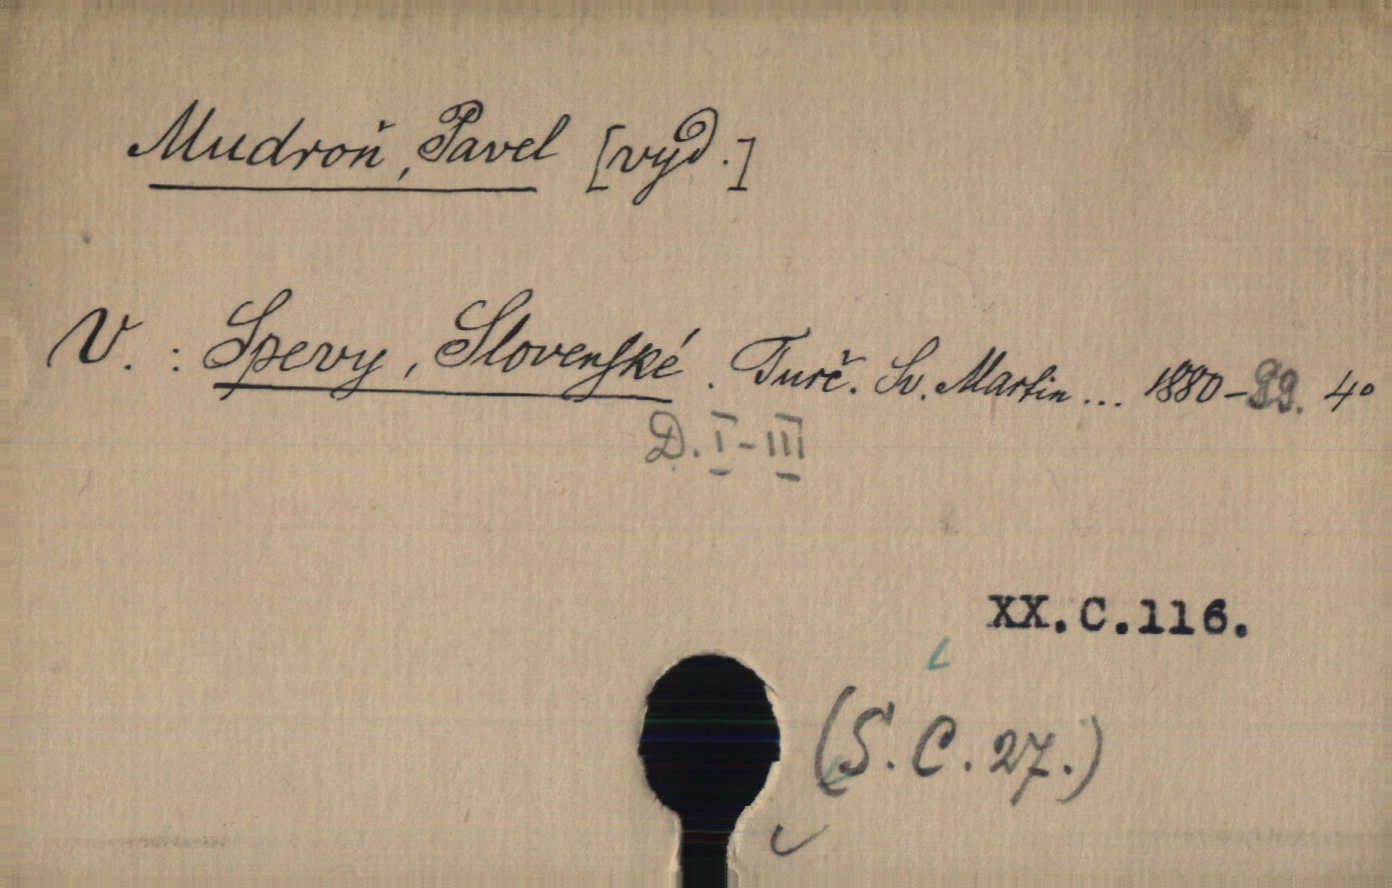 Mudroň, Pavel [vyd.]
V. : Spevy, Slovenſké. Turč. Sv. Martin ... 1880-99. 4°
D. I-III
XX.C.116.
(S. C. 27.)